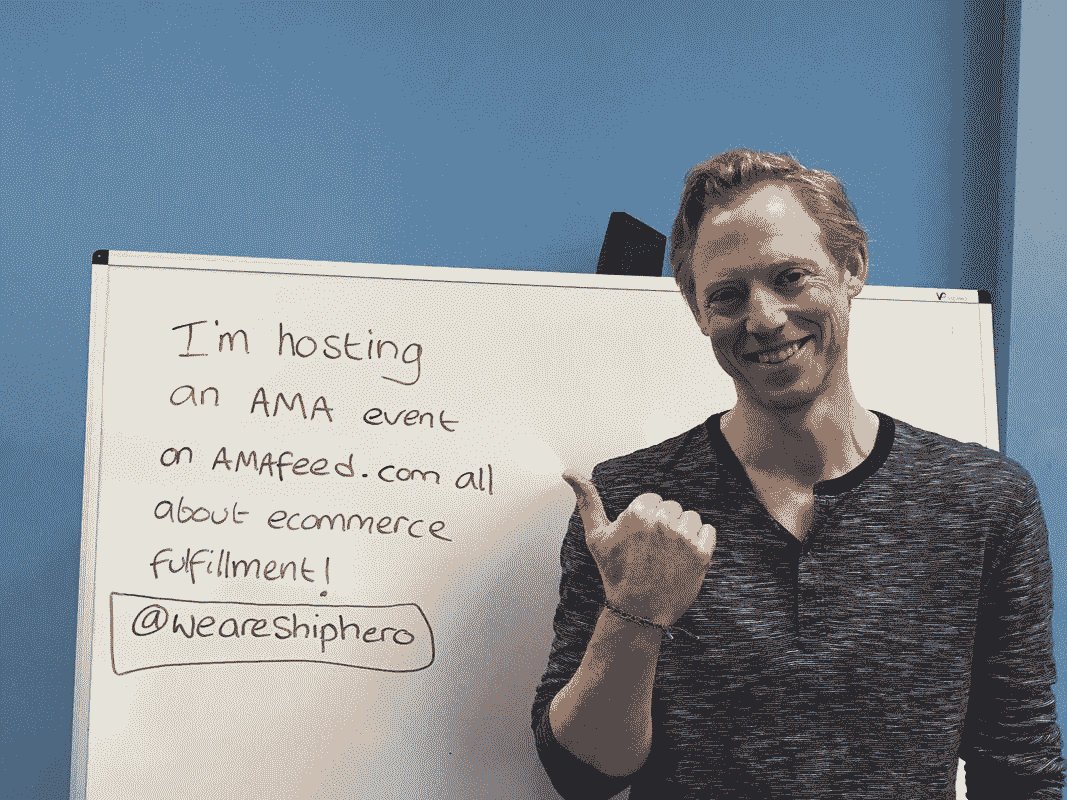 I'm hosting
an AMA event
on AMAfeed.com all
about ecommerce
fulfillment!
@weareshiphero